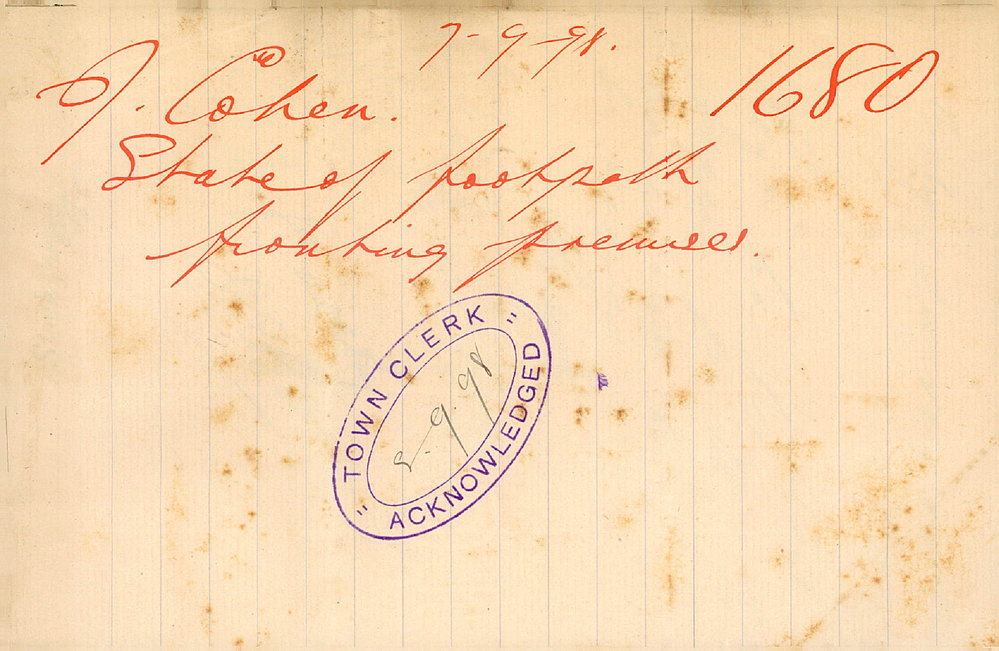 7-9-98.
J. Cohen. 1680
State of footpath
fronting premises.
" TOWN CLERK "
8.9.98
ACKNOWLEDGED